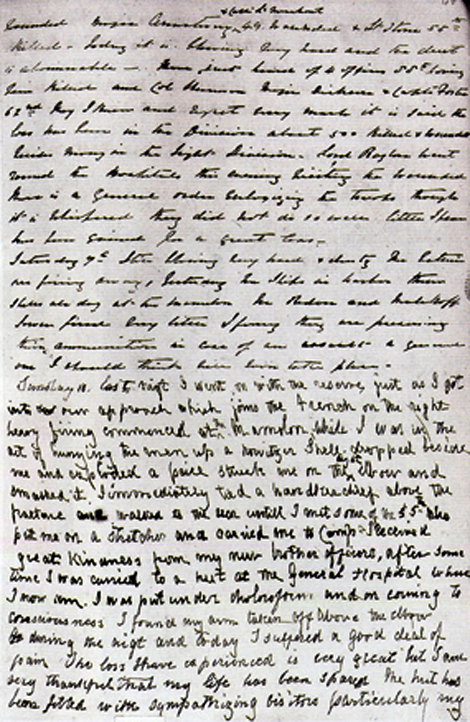 & Capt
wounded Major Armstrong 49 wounded & Lt Stone 55th
Killed - Today it is blowing very hard and the dust
is abominable - Have just heard of 4 officers 55th being
Killed and Col Major &
62nd they I know and regret very much it is said the
loss has been in the Division about 500 Killed & wounded
besides many in the Light Division - Lord Raglan went
round the Hospitals this evening visiting the wounded
There is a general order the troops though
it is whispered they did not do so well little
has been gained for a great loss -
Saturday 9th Still blowing very hard & dusty The Batteries
are firing away, Yesterday the Ships in harbor threw
Shells all day at the mamelon The Redan and Malakoff
Tower fired very little I fancy they are preserving
their ammunition in case of an assault a general
one I should think will soon take place -
Sunday 18. last nigt I went on with the reserve, just as I got
into our approach which joins the trench on the right
heavy firing commenced at the mamelon while I was in the
act of hurrying the men up a howitzer Shell dropped beside
me and exploded a piece struck me on the elbow and
smashed it, I immediately tied a handkerchief above the
fracture and walked to the rear untill I met some of the 55th who
put me on a stretcher and carried me to Camp I received
great Kindness from my new brother officers, after some
time I was carried to a hut at the General Hospital where
I now am. I was put under choloroform and on coming to
consciousness I found my arm taken off above the elbow
during the nigt and today I suffered a good deal of
pain The loss I have experienced is very great but I am
very thankful that my life has been spared The hut has
been filled with sympathizing visitors particularly my